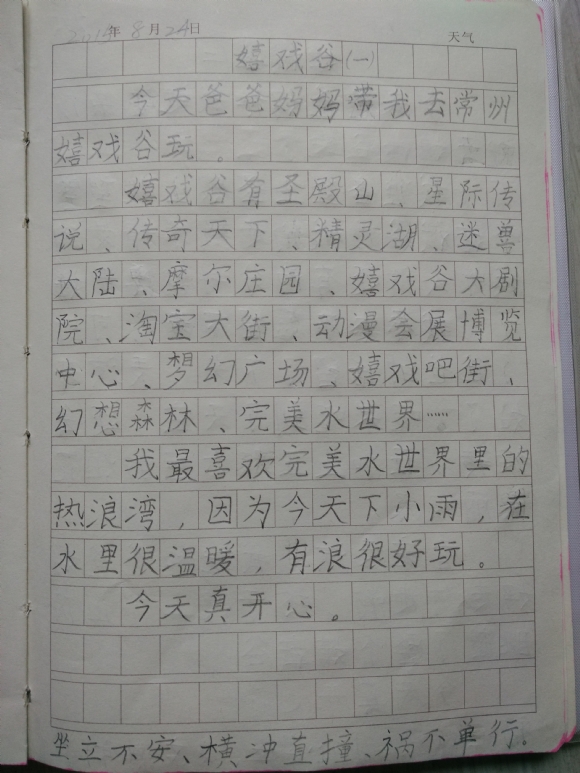 年8月24日 天气
嬉戏谷(一)
今天爸爸妈妈带我去常州
嬉戏谷玩。
嬉戏谷有圣殿山、星际传
说、传奇天下、精灵湖、迷兽
大陆、摩尔庄园、嬉戏谷大剧
院、淘宝大街、动漫会展博览
中心、梦幻广场、嬉戏吧街、
幻想森林、完美水世界……
我最喜欢完美水世界里的
热浪湾,因为今天下小雨,在
水里很温暖,有浪很好玩。
今天真开心。
坐立不安、横冲直撞、祸不单行。